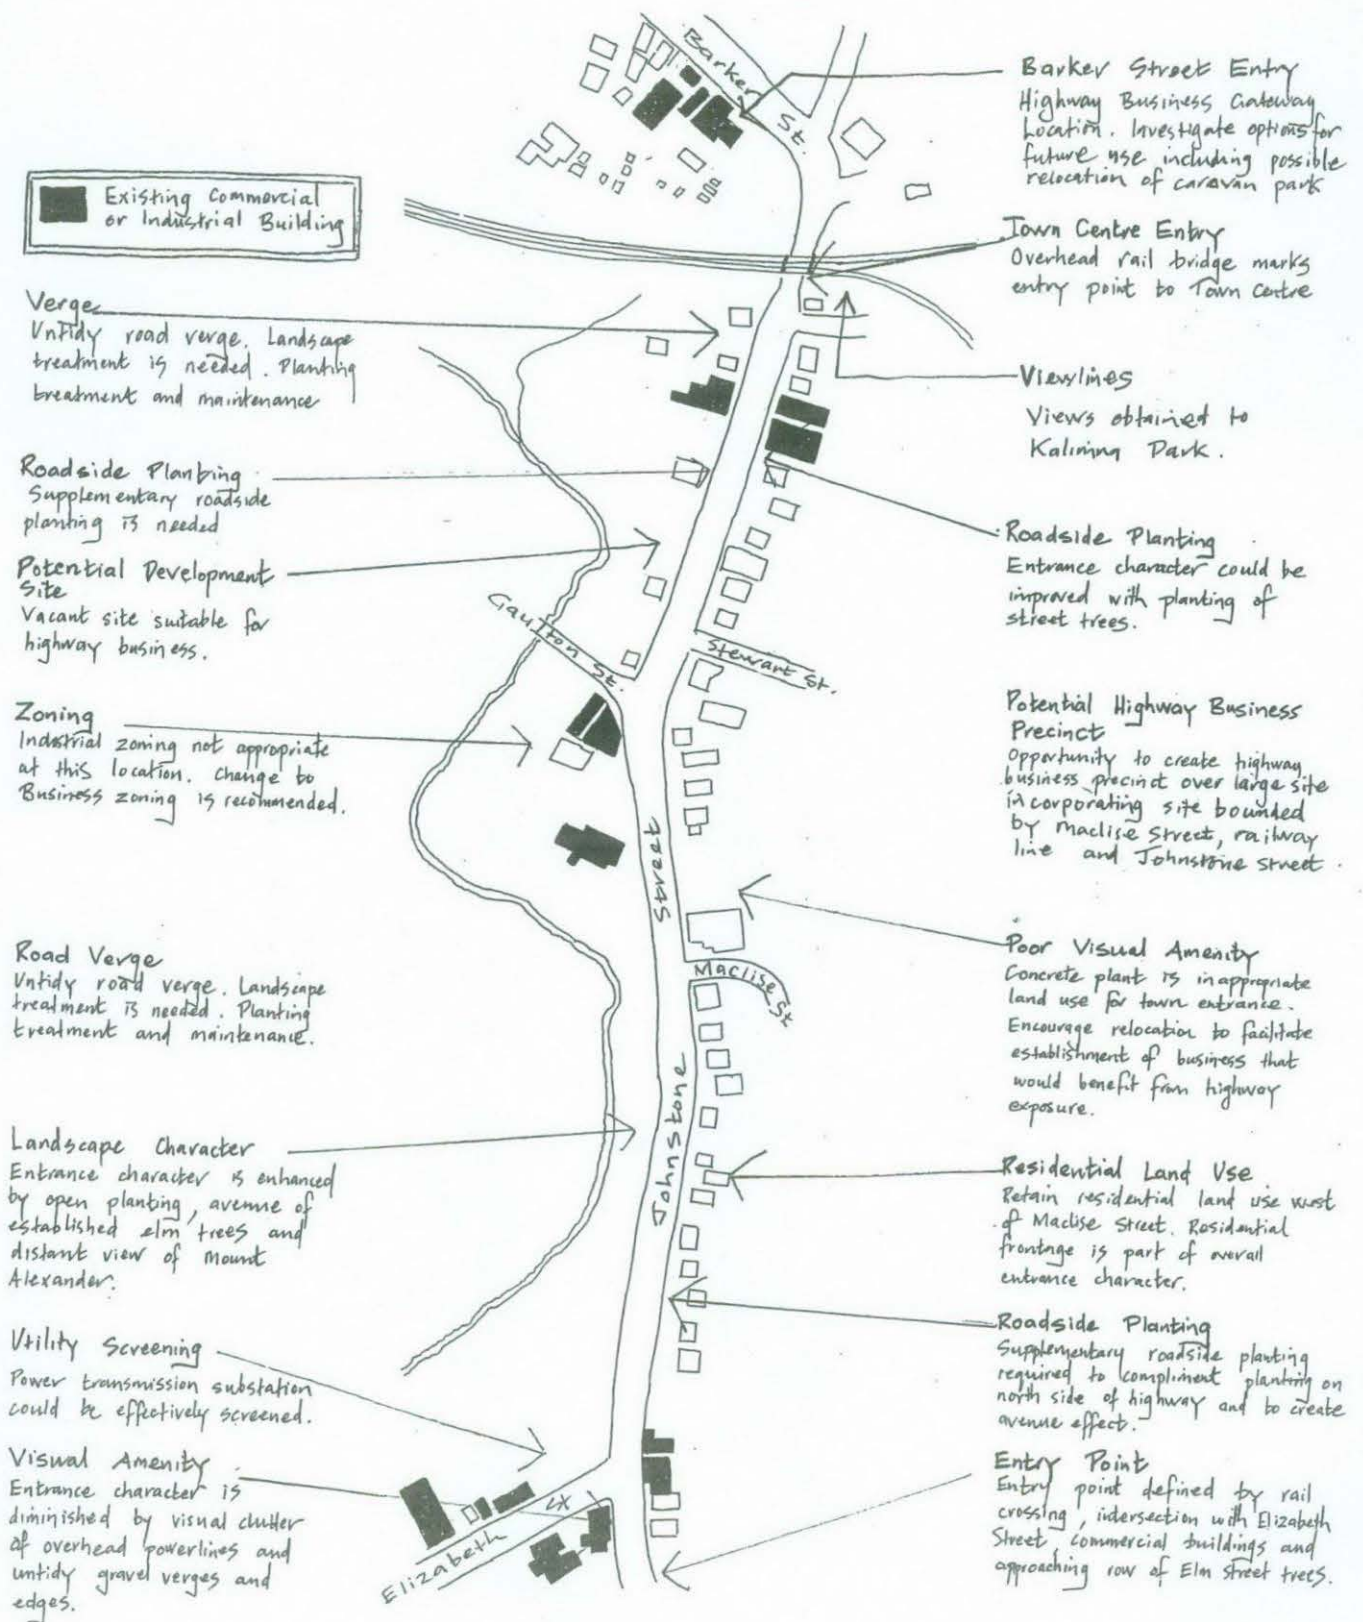 Existing Commercial
or Industrial Building
Verge
Untidy road verge. Landscape
treatment is needed. Planting
treatment and maintenance
Roadside Planting
Supplementary roadside
planting is needed
Potential Development
Site
Vacant site suitable for
highway business.
Zoning
Industrial zoning not appropriate
at this location. Change to
Business zoning is recommended.
Road Verge
Untidy road verge. Landscape
treatment is needed. Planting
treatment and maintenance.
Landscape Character
Entrance character is enhanced
by open planting, avenue of
established elm trees and
distant view of Mount
Alexander.
Utility Screening
Power transmission substation
could be effectively screened.
Visual Amenity
Entrance character is
diminished by visual clutter
of overhead powerlines and
untidy gravel verges and
edges.
Barker
St.
Gaulton St.
Stewart St.
Street
Maclise St
Johnstone
Elizabeth St
Barker Street Entry
Highway Business Gateway
Location. Investigate options for
future use including possible
relocation of caravan park
Town Centre Entry
Overhead rail bridge marks
entry point to Town Centre
Viewlines
Views obtained to
Kalimna Park.
Roadside Planting
Entrance character could be
improved with planting of
street trees.
Potential Highway Business
Precinct
Opportunity to create highway
business precinct over large site
incorporating site bounded
by Maclise Street, railway
line and Johnstone Street.
Poor Visual Amenity
Concrete plant is inappropriate
land use for town entrance.
Encourage relocation to facilitate
establishment of business that
would benefit from highway
exposure.
Residential Land Use
Retain residential land use west
of Maclise Street. Residential
frontage is part of overall
entrance character.
Roadside Planting
Supplementary roadside planting
required to compliment planting on
north side of highway and to create
avenue effect.
Entry Point
Entry point defined by rail
crossing, intersection with Elizabeth
Street, commercial buildings and
approaching row of Elm street trees.